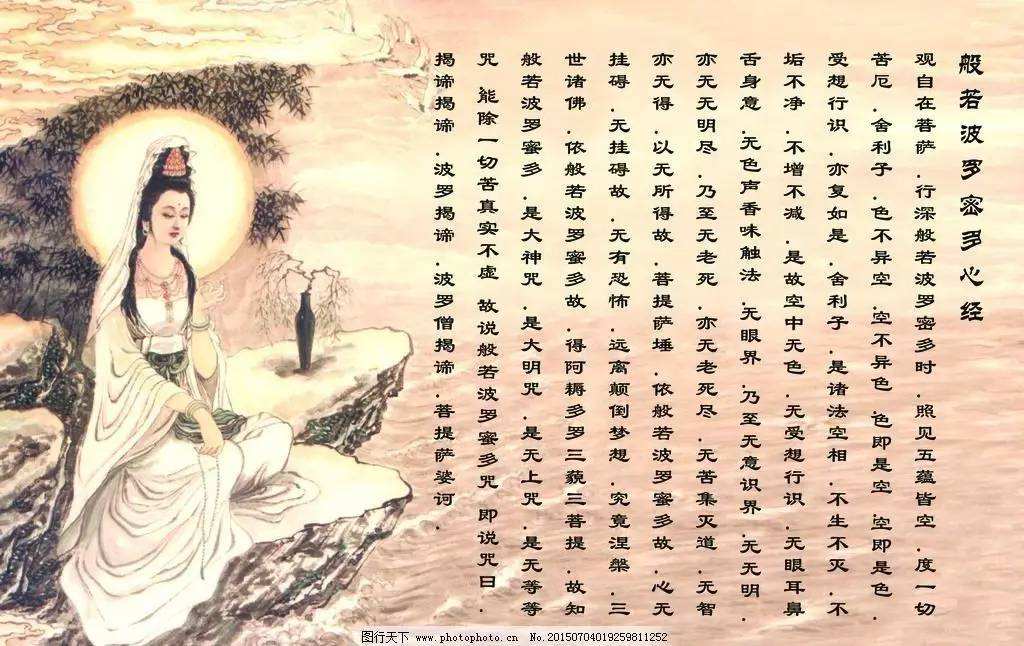 般若波多密多心经
观自在菩萨.行深般若波罗密多时.照见五蕴皆空.度一切
苦厄.舍利子.色不异空.空不异色 色即是空.空即是色.
受想行识.亦复如是.舍利子.是诸法空相.不生不灭.不
垢不净.不增不减.是故空中无色.无受想行识.无眼耳鼻
舌身意.无色声香味触法.无眼界.乃至无意识界.无无明.
亦无无明尽.乃至无老死.亦无老死尽.无苦集灭道.无智
亦无得.以无所得故.菩提萨埵.依般若波罗蜜多故.心无
挂碍.无挂碍故.无有恐怖.远离颠倒梦想.究竟涅槃.三
世诸佛.依般若波罗蜜多故.得阿耨多罗三藐三菩提.故知
般若波罗蜜多.是大神咒.是大明咒.是无上咒.是无等等
咒 能除一切苦真实不虚 故说般若波罗蜜多咒 即说咒曰.
揭谛揭谛.波罗揭谛.波罗僧揭谛.菩提萨婆诃.
图行天下 www.photophoto.cn No.20150704019259811252